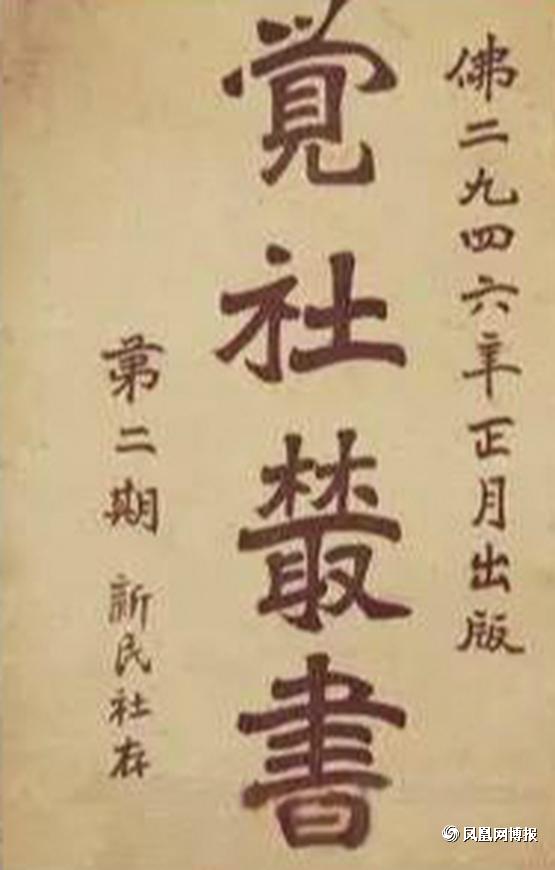 佛二九四六年正月出版
覚社叢書
第二期 新民社存
凤凰网博报